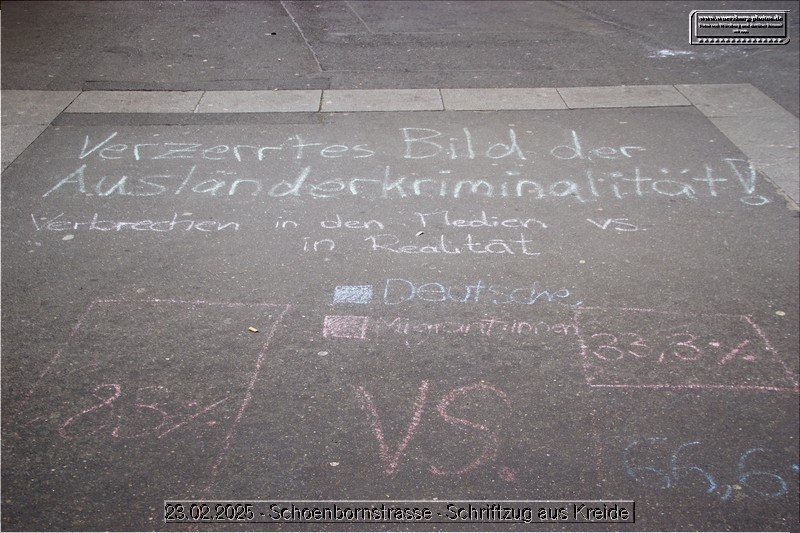 www.wuerzburg-photos.de
Verzerrtes Bild der
Ausländerkriminalität!
Verbrechen in den Medien vs.
in Realität
Deutsche
Migrant:innen
33,3%
VS.
66,6
23.02.2025 - Schoenbornstrasse - Schriftzug aus Kreide